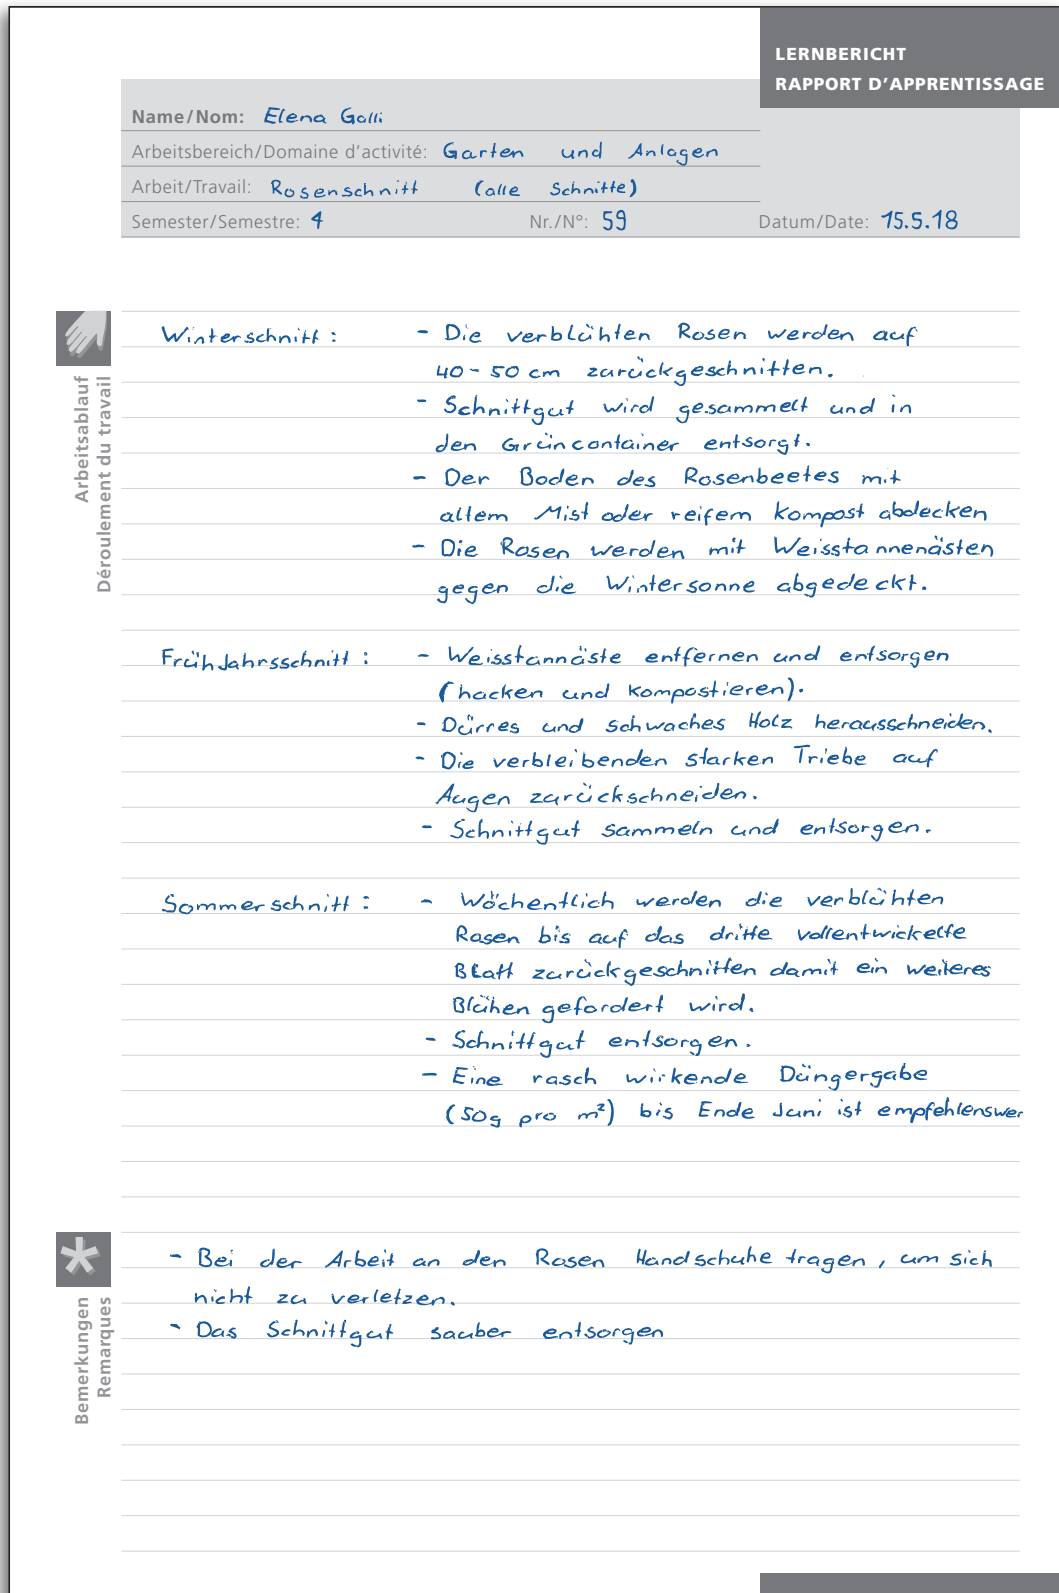 LERNBERICHT
RAPPORT D'APPRENTISSAGE
Name/Nom: Elena Galli
Arbeitsbereich/Domaine d'activité: Garten und Anlagen
Arbeit/Travail: Rosenschnitt (alle Schnitte)
Semester/Semestre: 4 Nr./N°: 59 Datum/Date: 15.5.18
Arbeitsablauf
Déroulement du travail
Winterschnitt: - Die verblühten Rosen werden auf
40-50 cm zurückgeschnitten.
- Schnittgut wird gesammelt und in
den Grüncontainer entsorgt.
- Der Boden des Rosenbeetes mit
altem Mist oder reifem Kompost abdecken
- Die Rosen werden mit Weisstannenästen
gegen die Wintersonne abgedeckt.
Frühjahrsschnitt: - Weisstannäste entfernen und entsorgen
(hacken und kompostieren).
- Dürres und schwaches Holz herausschneiden.
- Die verbleibenden starken Triebe auf
Augen zurückschneiden.
- Schnittgut sammeln und entsorgen.
Sommerschnitt: - Wöchentlich werden die verblühten
Rosen bis auf das dritte vollentwickelte
Blatt zurückgeschnitten damit ein weiteres
Blühen gefordert wird.
- Schnittgut entsorgen.
- Eine rasch wirkende Düngergabe
(50g pro m²) bis Ende Juni ist empfehlenswer
Bemerkungen
Remarques
- Bei der Arbeit an den Rosen Handschuhe tragen, um sich
nicht zu verletzen.
- Das Schnittgut sauber entsorgen